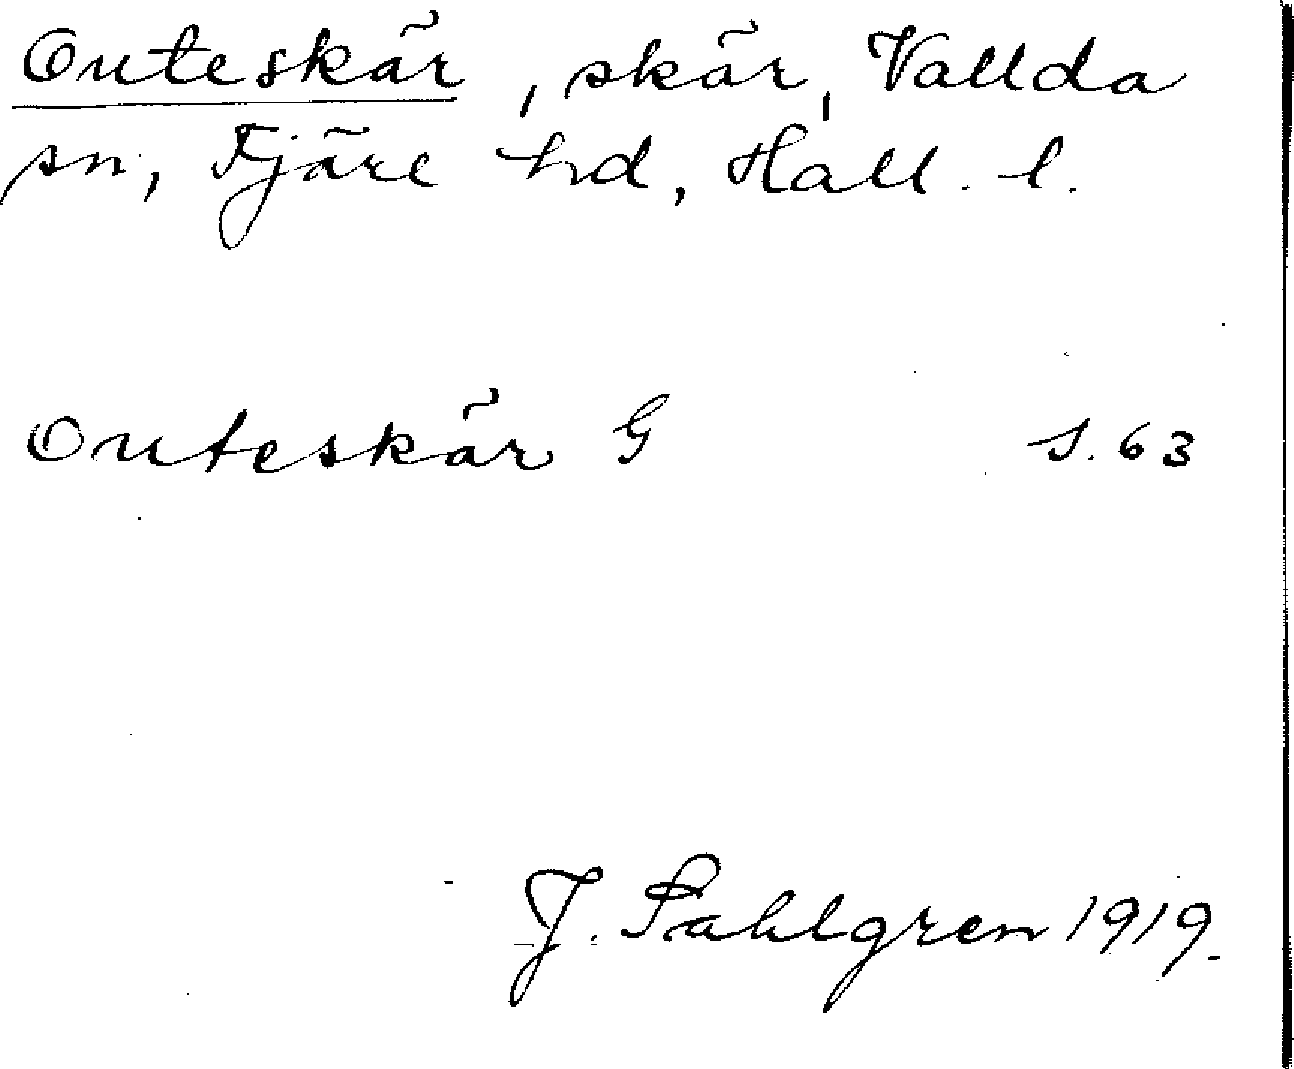 Outeskär, skär, Vallda
sn, Fjäre hd, Hall. l.
Outeskär G S. 63
J. Sahlgren 1919.